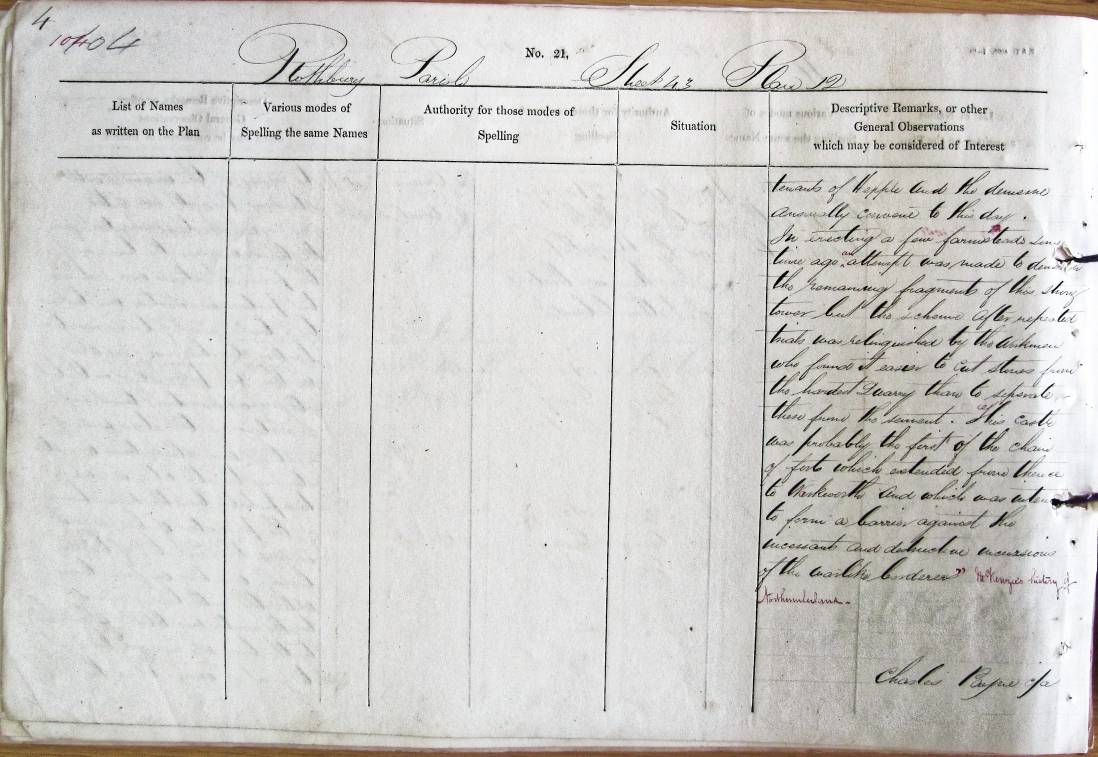 4
10404
No. 21,
Rothbury Parish Sheet 43 Plan 12
List of Names
as written on the Plan
Various modes of
Spelling the same Names
Authority for those modes of
Spelling
Situation
Descriptive Remarks, or other
General Observations
which may be considered of Interest
tenants of Hepple and the demesne
annually convene to this day.
In erecting a few farmsteads some
time ago an attempt was made to
the remaining fragments of this strong
tower but the scheme after repeated
trials was relinquished by the workmen
who found it easier to cut stones from
the hardest Quarry than to seperate
these from the sement. This castle
was probably the first of the chain
of forts which extended from thence
to Warkworth and which was
to form a barrier against the
incessant and destructive incursions
of the warlike borderer" McKenzie's history of
Northumberland.
Charles Payne c/a